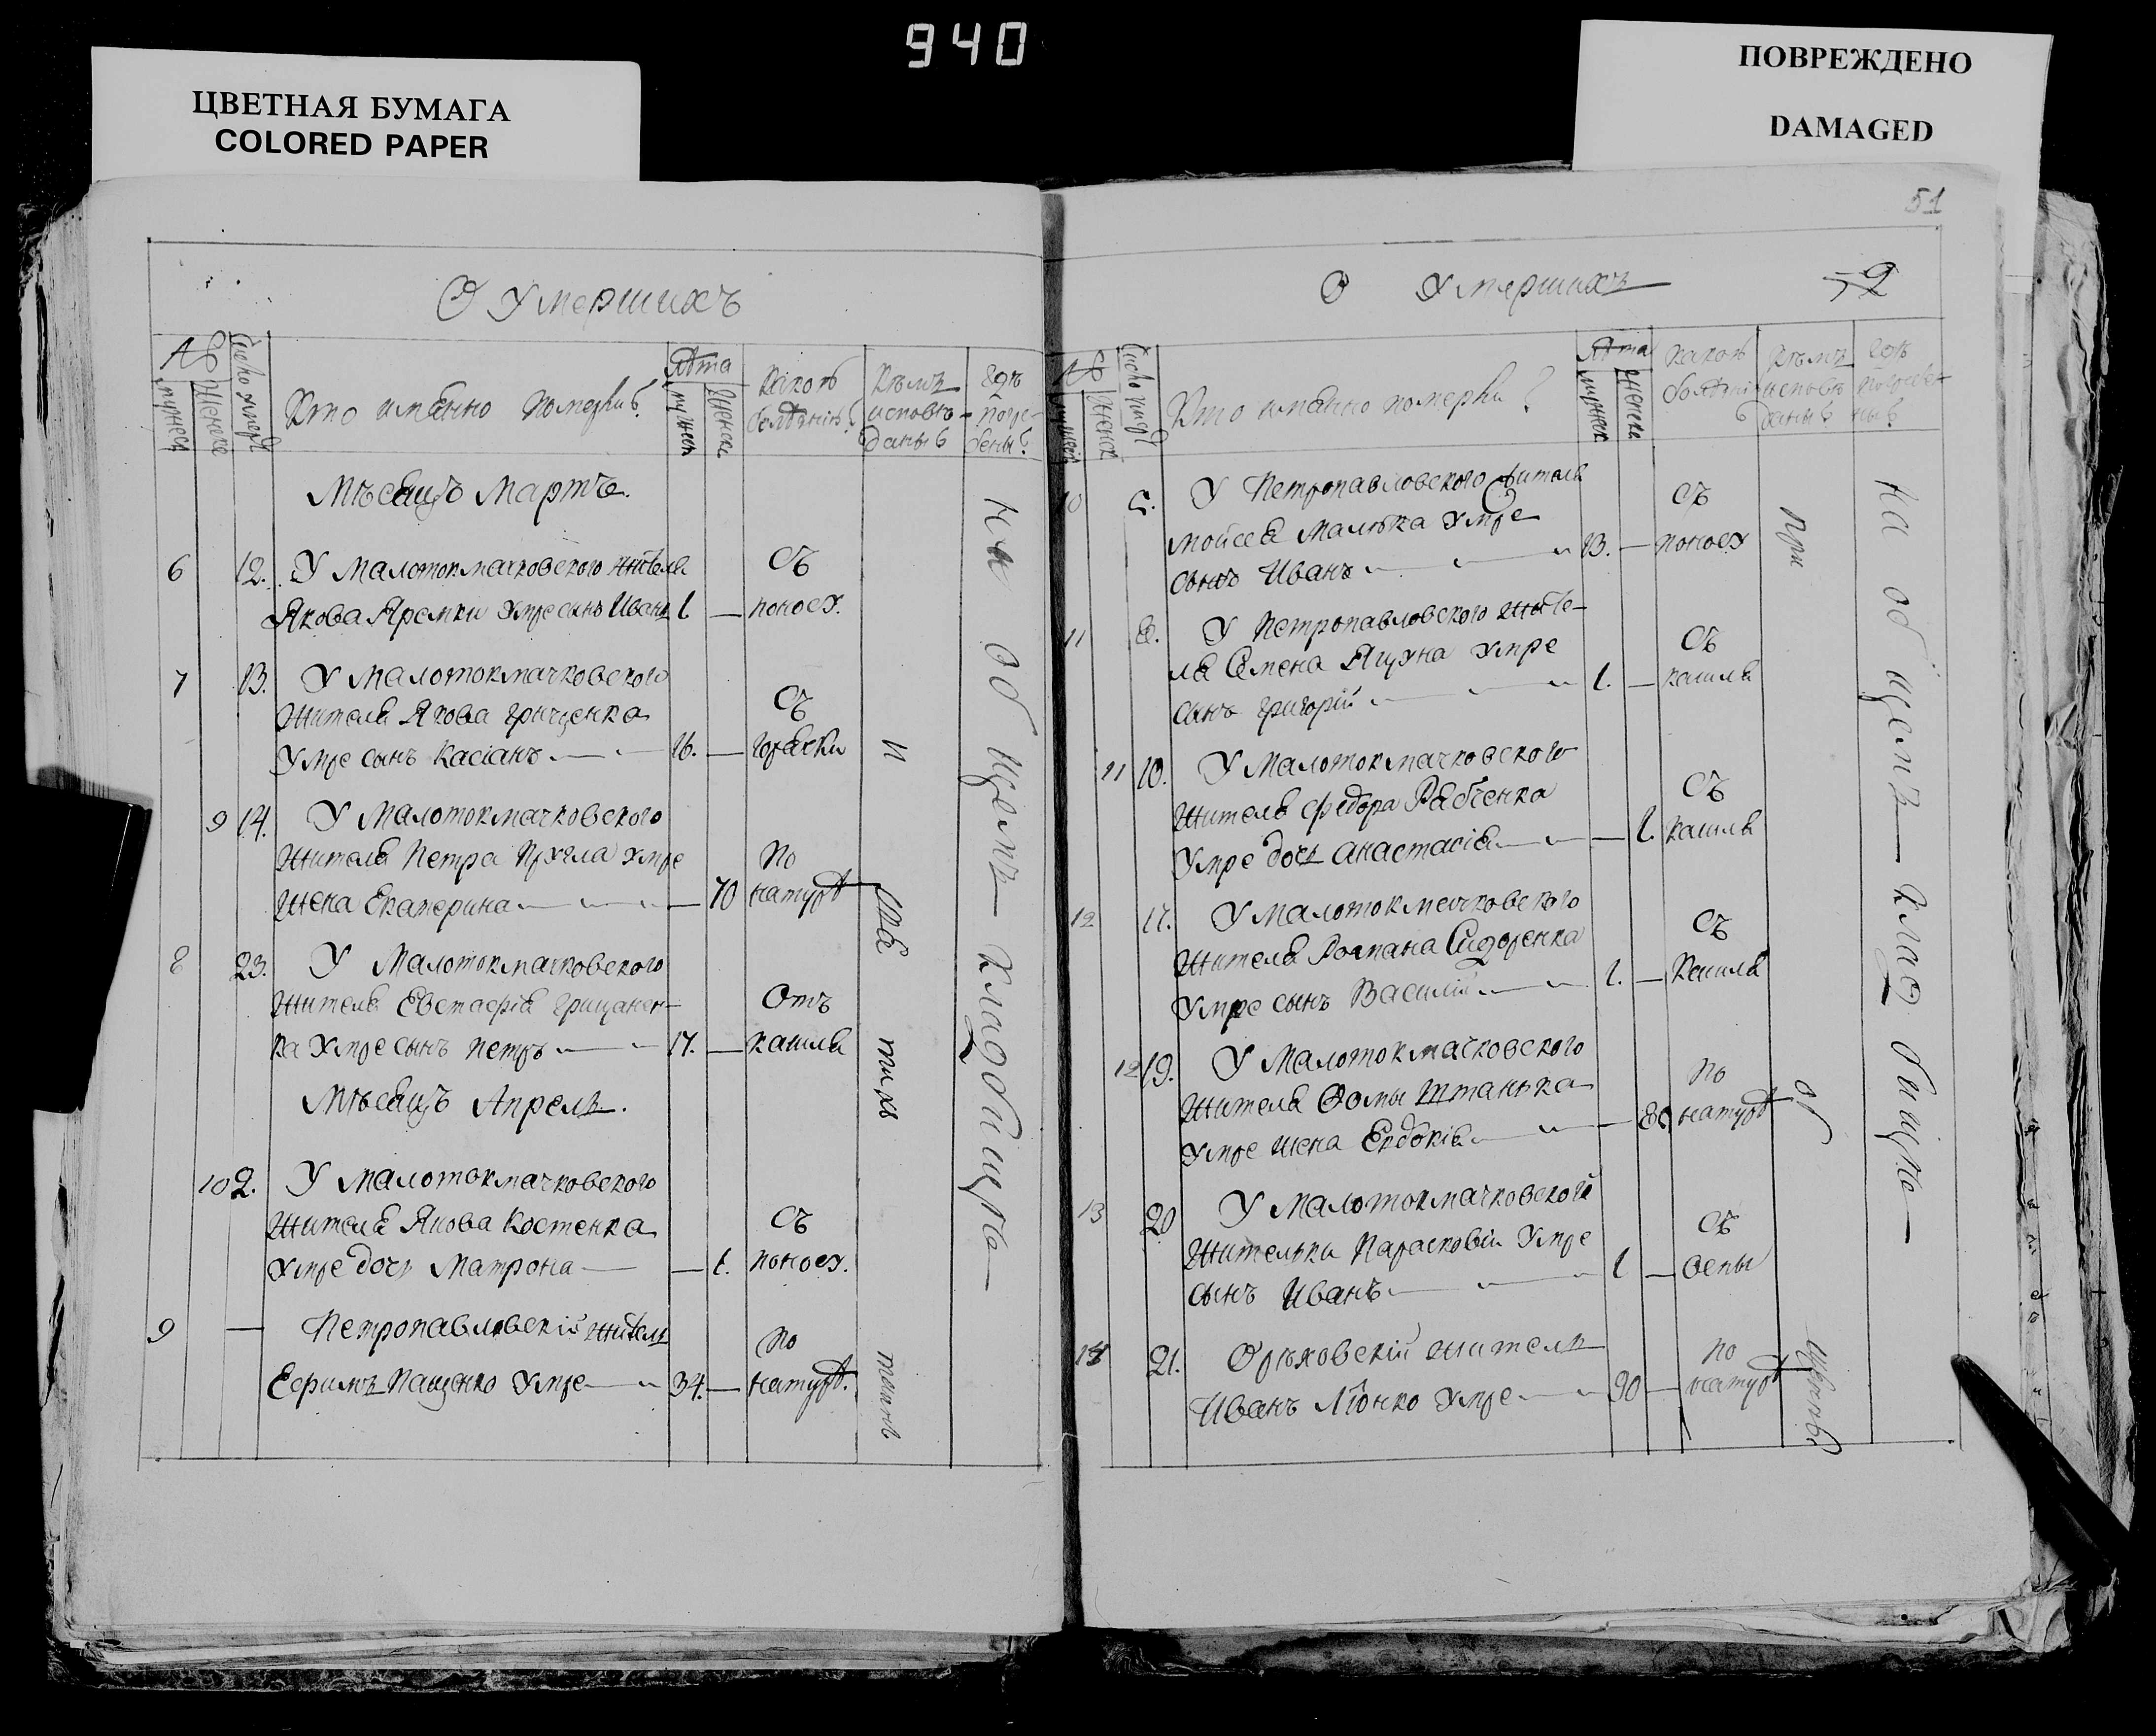 940
ЦВЕТНАЯ БУМАГА
COLORED PAPER
ПОВРЕЖДЕНО
DAMAGED
О Умершихъ
№
мужеск
женске
Число умерт
Кто именно померли?
Лѣта
мужеск
женск
Какою
болѣзнію?
Кѣмъ
исповѣ-
даны?
Гдѣ
погре-
бены?
Мѣсяцъ Мартъ.
6 12. У Малотокмачковского жителя
Якова Яремки умре сынъ Иванъ 1 — Съ поносу.
7 13. У Малотокмачковского
жителя Якова Гриценка
умре сынъ Касіанъ 16. — Съ горячки
9 14. У Малотокмачковского
жителя Петра умре
жена Екатерина — 70 По натурѣ
8 23. У Малотокмачковского
жителя Евстафія Грицанен-
ка умре сынъ Петръ 17. — Отъ кашля
Мѣсяцъ Апрель.
10 2. У Малотокмачковского
жителя Якова Костенка
умре дочь Матрона — 1. Съ поносу.
9 — Петропавловскій житель
Ефимъ Пащенко умре 34. — По натурѣ.
На общемъ кладбищѣ
51
О Умершихъ
9
№
мужеск
женск
Число умерт
Кто именно померли?
Лѣта
мужеск
женске
Какою
болѣзні
Кѣмъ
исповѣ
даны?
Гдѣ
погребе
ны?
10 5. У Петропавловского жителя
Мойсея Малѣка умре
сынъ Иванъ 13. — Съ поносу
11 8. У Петропавловского жите-
ля Семена Ягуна умре
сынъ Григорій 1. — Съ кашля
11 10. У Малотокмачковского
жителя Федора Рябченка
умре дочь Анастасія — 1. Съ кашля
12 17. У Малотокмачковского
жителя Романа Сидоренка
умре сынъ Василій 1. — Съ кашля
12 19. У Малотокмачковского
жителя Фомы Штанька
умре жена Евдокія — 80 По натурѣ
13 20 У Малотокмачковской
жительки Парасковіи умре
сынъ Иванъ 1 — Съ оспы
14 21. Орѣховскій житель
Иванъ Ліонко умре 90 — По натурѣ
При
На общемъ кладбищѣ